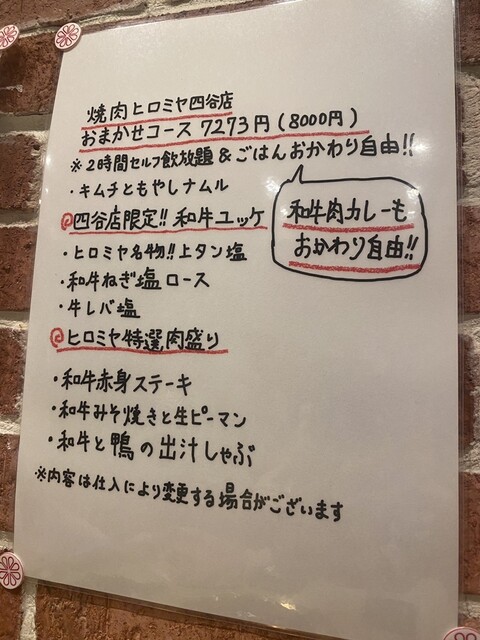 焼肉ヒロミヤ四谷店
おまかせコース 7273円(8000円)
※2時間セルフ飲放題&ごはんおかわり自由!!
・キムチともやしナムル
四谷店限定!! 和牛ユッケ
和牛肉カレーも
おかわり自由!!
・ヒロミヤ名物!!上タン塩
・和牛ねぎ塩ロース
・牛レバ塩
ヒロミヤ特選肉盛り
・和牛赤身ステーキ
・和牛みそ焼きと生ピーマン
・和牛と鴨の出汁しゃぶ
※内容は仕入により変更する場合がございます